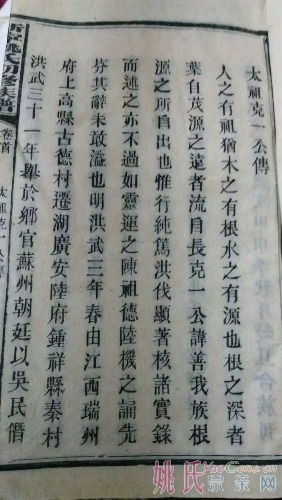 太祖克一公傳
人之有祖猶木之有根水之有源也根之深者
葉自茂源之遠者流自長克一公諱善我族根
源之所自出也惟行純篤洪伐顯著核諸實錄
而述之亦不過如靈運之陳祖德陸機之誦先
芬其辭未敢溢也明洪武三年春由江西瑞州
府上高縣古德村遷湖廣安陸府鍾祥縣秦村
洪武三十一年舉於鄉官蘇州朝廷以吳民僭
姚氏初修族譜
卷首
太祖克一公傳
姚氏宗亲网
YaoGens.cn